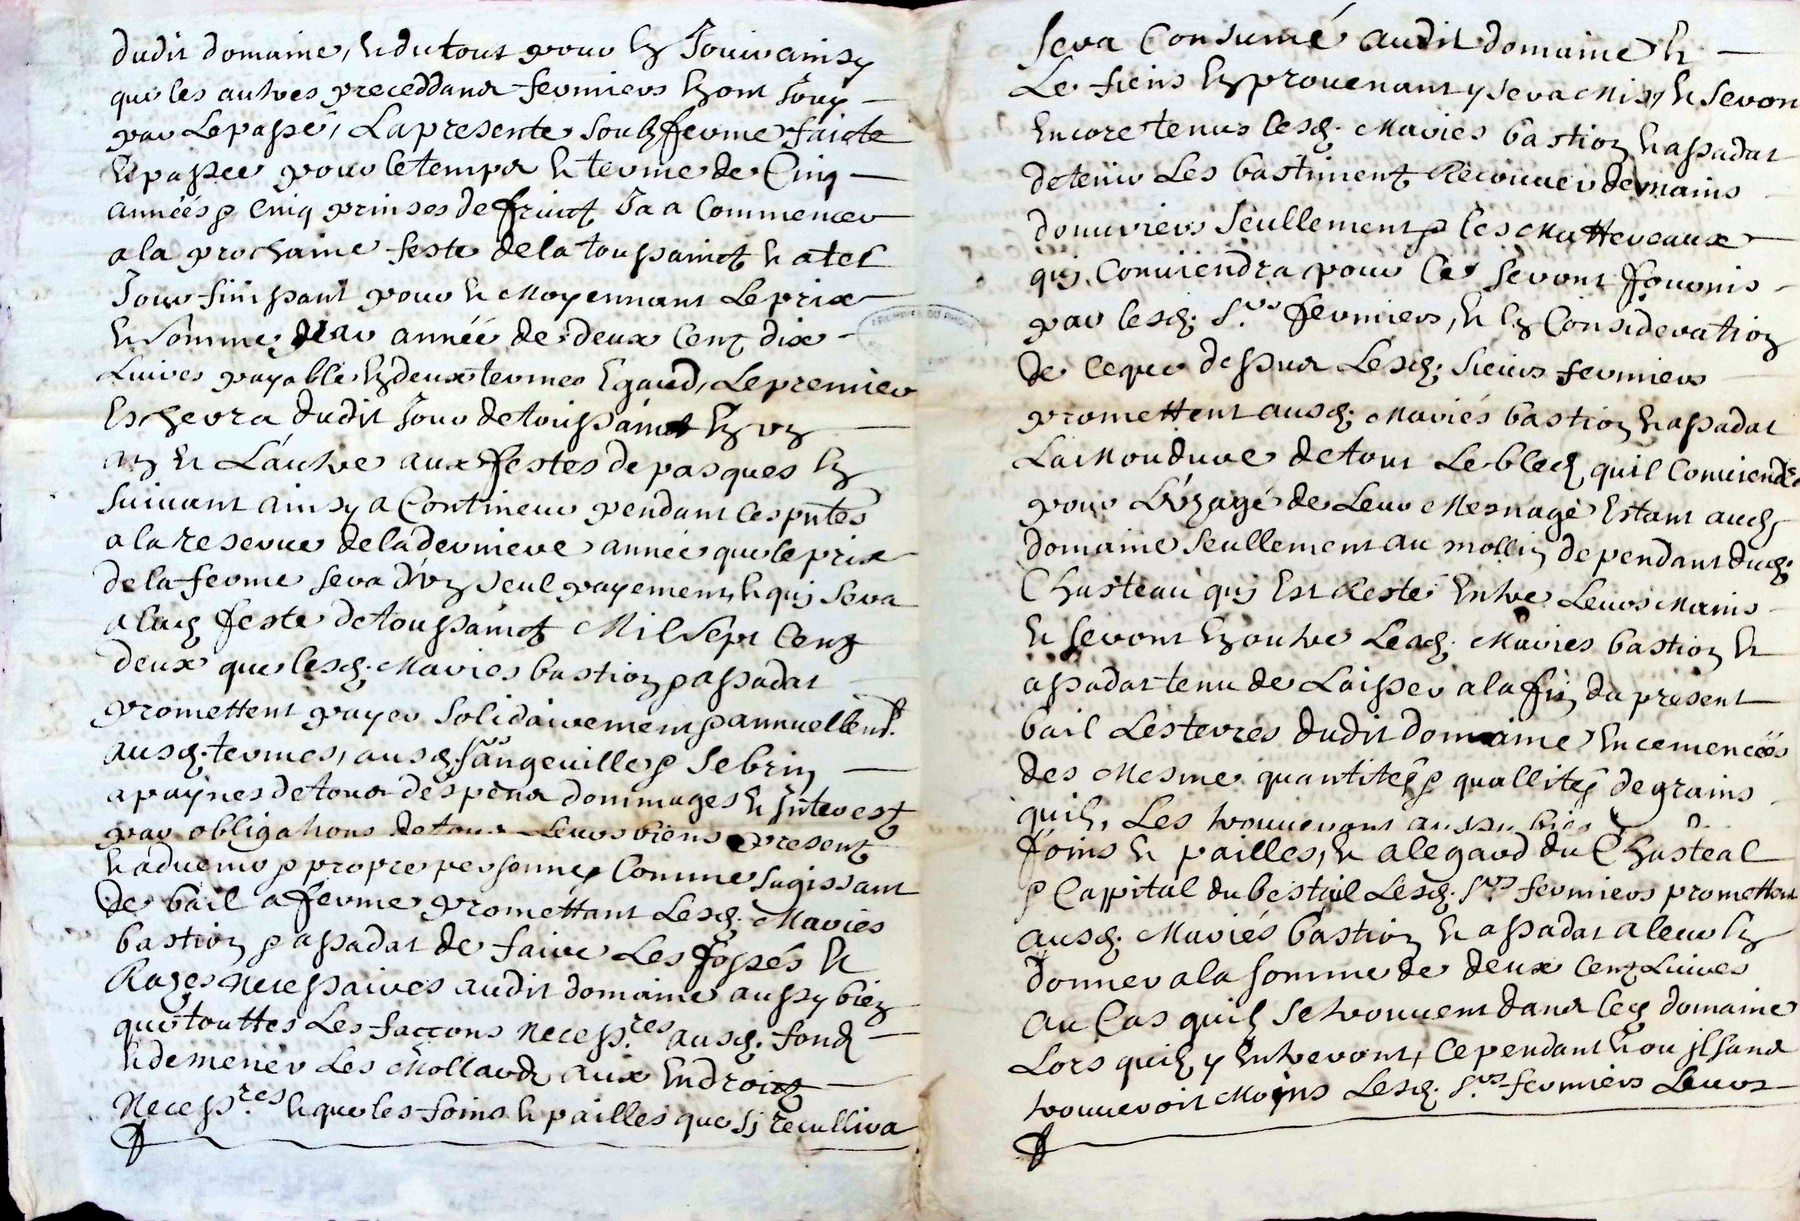 dudit domaine, & du tout pour en Jouir ainsy
que les autres preceddans fermiers en ont Jouy
par Le passé, La presente soubz ferme faicte
& passee pour le temps & terme de Cinq
années & cinq prinses de fruict Ja a Commencer
a la prochaine feste de la toussainct & a tel
Jour finissant pour & Moyennant Le prix
& somme par année de deux Cent dix
Livres payable en deux termes Egaud, Le premier
Eschevra dudit Jour de toussainct en un
an & L'autre aux festes de pasques en
suivant ainsy a Continuer pendant ces pntes
a la reserve de la derniere année que le prix
de la ferme sera d'un seul payement, & qui sera
a lad feste de toussainct Mil Sept Cent
deux que lesd. Maries bastion & assadat
promettent payer solidairement & annuellemt
ausd. termes, ausd. srs angeuille & sebrin
a paynes de tous despens dommages & Interest
par obligations de tous Leurs biens present
& advenir & propre personnes Comme sagissant
de bail a ferme promettant Lesd. Mariés
bastion & assadat de faire Les fossés &
Razes Necessaires audit domaine aussy bien
que touttes Les facçons Necess.res ausd. fond
& de mener Les Mollard aux Endroict
Necess.res & que les foins & pailles que sj recullira
sera Consumé audit domaine &
Le fiens en provenant y sera Mis, & seron
Encore tenus lesd. Mariés bastion & assadat
de tenir Les bastiment Recouver de mains
d'ouvriers seullement & les Mattereaux
qui Conviendra pour Ce seront fournis
par lesd. S.rs fermiers, & en Consideration
de ce que dessus Lesd. sieurs fermiers
promettent ausd. Mariés bastion & assadat
La Moudure de tout Le bled quil Conviendra
pour L'uzage de Leur Mesnage Estant aud
domaine seullement au mollin dependant dud.
Chasteau qui Est Resté Entre Leurs Mains
& seront en outre Lesd. Maries bastion &
assadat tenu de Laisser a la fin du present
bail Les terres dudit domaine Encemencées
des Mesme quantités & quallités de grains
quils Les trouveront aussy bien
foins & pailles, & a legard du Chastéal
& Cappital du bestial Lesd. S.rs fermiers promettent
ausd. Mariés bastion & assadat a leur en
donner a la somme de deux Cent Livres
au Cas quil se trouvent dans led domaine
Lors quil y Entreront, Cependant & ou il sans
trouveroit Moins Lesd. S.rs fermiers Leurs